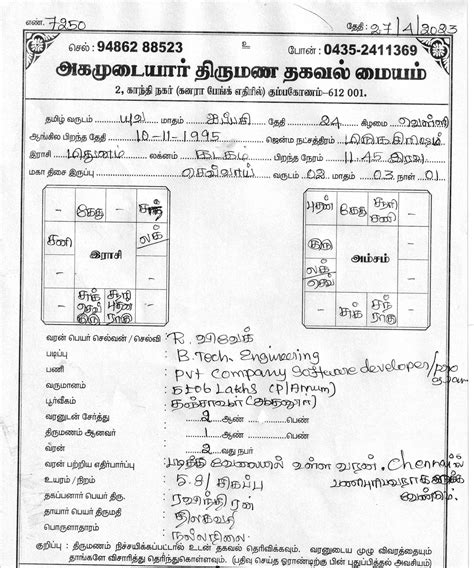 எண். 7250 தேதி : 27/4/2023
செல் : 94862 88523 உ போன் : 0435-2411369
அகமுடையார் திருமண தகவல் மையம்
2, காந்தி நகர் (கனரா பேங்க் எதிரில்) கும்பகோணம்–612 001.
தமிழ் வருடம் யுவ மாதம் ஐப்பசி தேதி 24 கிழமை வெள்ளி
ஆங்கில பிறந்த தேதி 10-11-1995 ஜென்ம நட்சத்திரம்
இராசி மிதுனம் லக்னம் கடகம் பிறந்த நேரம் 11.45 இரவு
மகா திசை இருப்பு செவ்வாய் வருடம் 02 மாதம் 03 நாள் 01
- கேது - சந்
சனி இராசி லக்
- -
- சுக் செவ் குரு சூரி புதன் ராகு -
புதன் கேது - சூரி சனி
குரு அம்சம் -
லக் செவ் -
- சுக் சந் ராகு
வரன் பெயர் செல்வன் / செல்வி : R. விவேக்
படிப்பு : B.Tech. Engineering
பணி : Pvt Company Software developer/
வருமானம் : 6 Lakhs (P/Annum)
பூர்வீகம் : தஞ்சாவூர்
வரனுடன் சேர்த்து : 2 ஆண் பெண்
திருமணம் ஆனவர் : 1 ஆண் பெண்
வரன் : 2 வது நபர்
வரன் பற்றிய எதிர்பார்ப்பு : படித்த வேலையில் உள்ள வரன். Chennaiல்
உயரம் / நிறம் : 5.8/ சிகப்பு வேண்டும்.
தகப்பனார் பெயர் திரு. : ரவிந்திரன்
தாயார் பெயர் திருமதி : திலகவதி
பொருளாதாரம் : நல்லநிலை
குறிப்பு : திருமணம் நிச்சயிக்கப்பட்டால் உடன் தகவல் தெரிவிக்கவும். வரனுடைய முழு விவரத்தையும்
தாங்களே விசாரித்து தெரிந்துகொள்ளவும். (பதிவு செய்த ஓராண்டிற்கு பின் புதுப்பித்தல் அவசியம்)